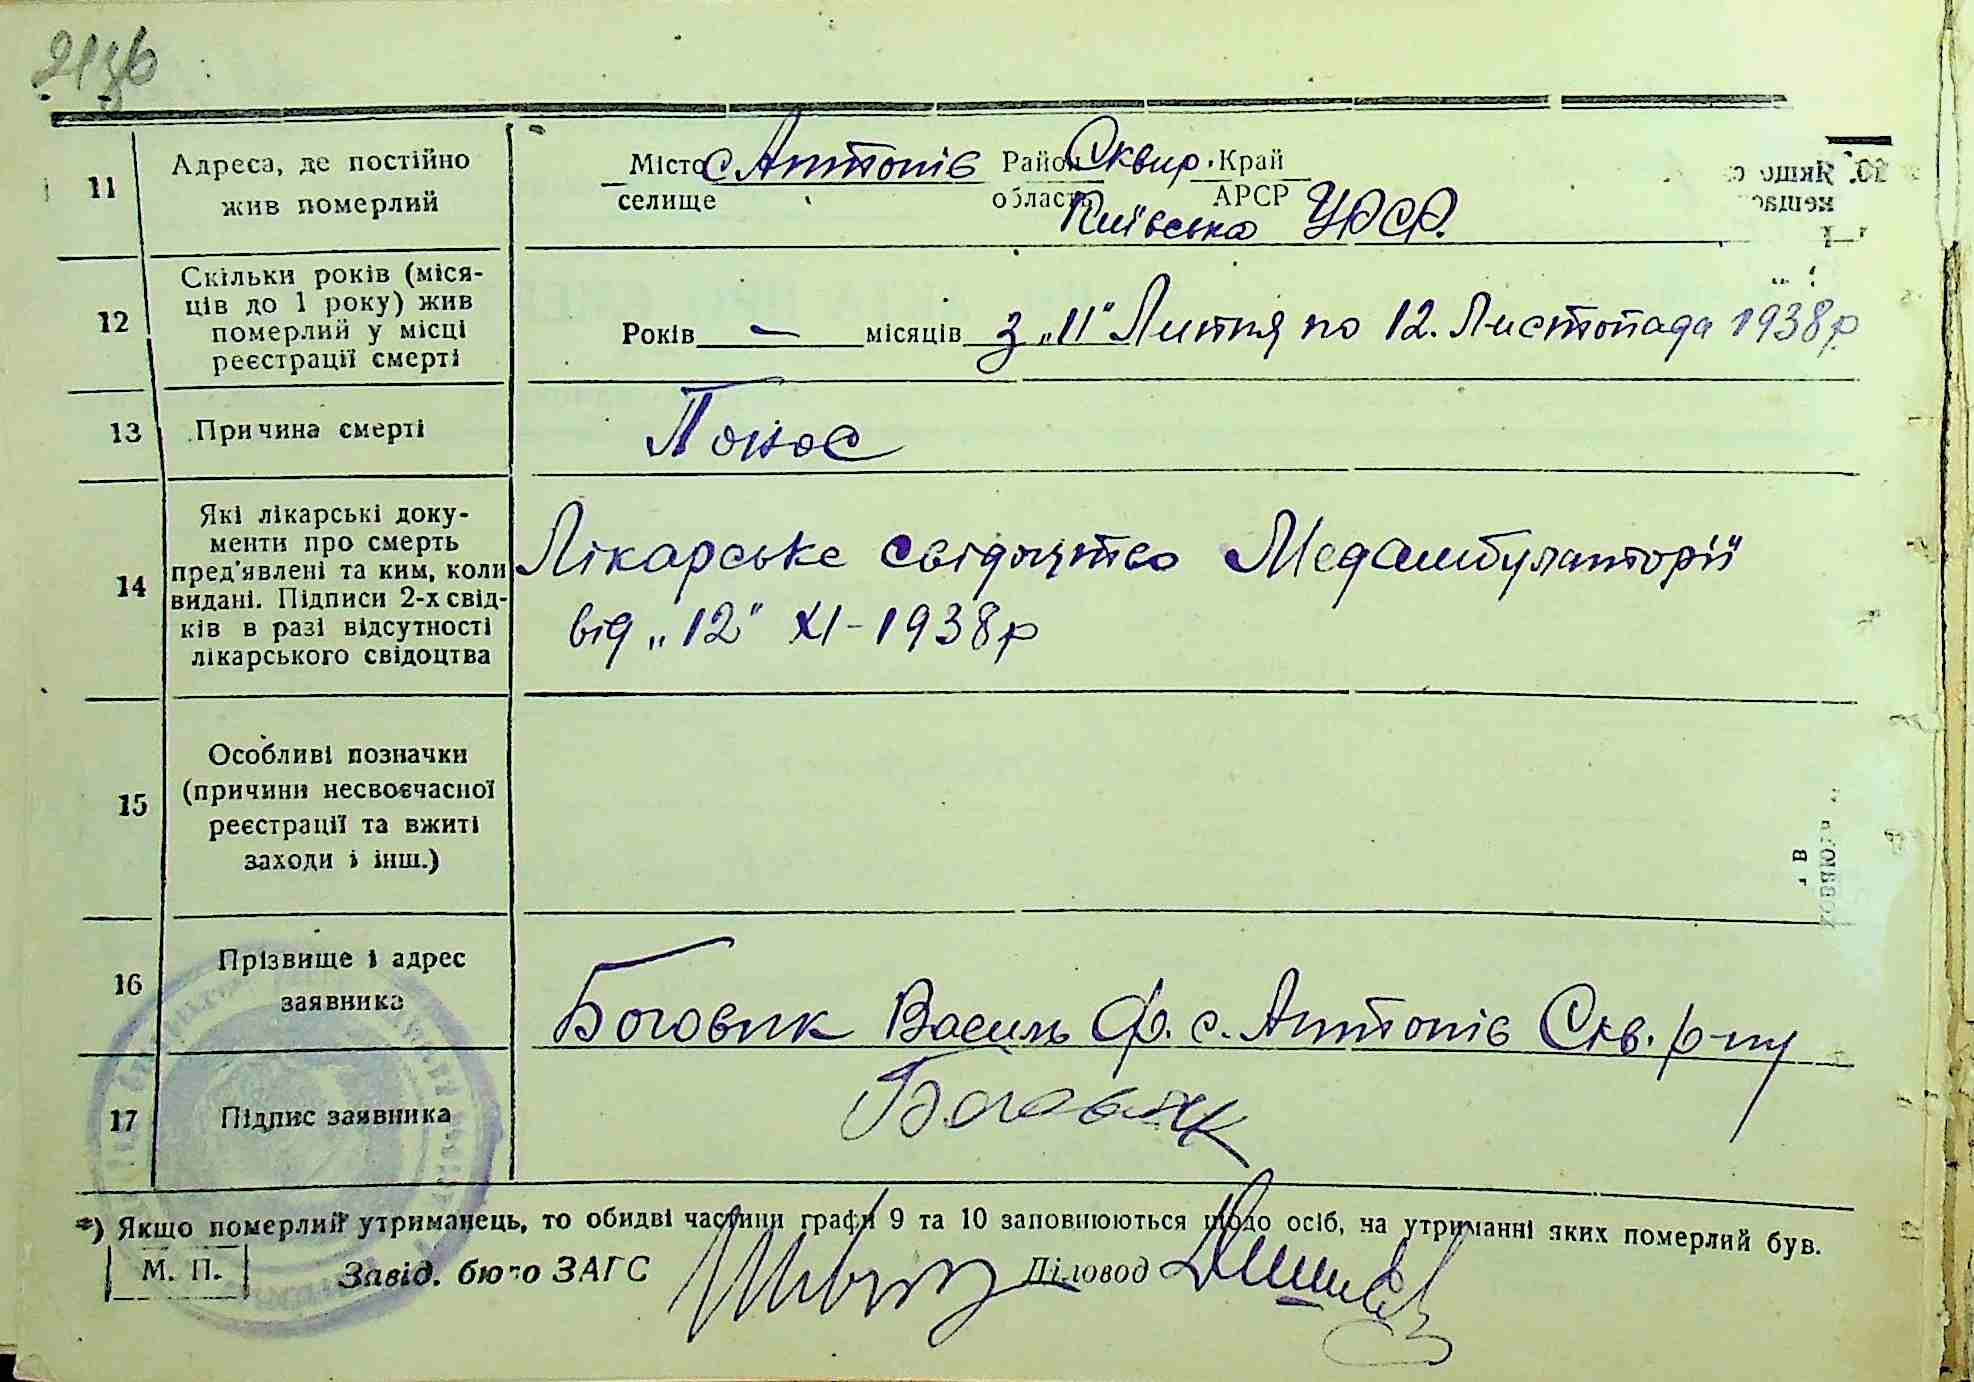 11
Адреса, де постійно
жив померлий
Місто с Антонів Район Сквир. Край
селище область АРСР
Київська УРСР.
12
Скільки років (міся-
ців до 1 року) жив
померлий у місці
реєстрації смерті
Років — місяців з „11" Липня по 12. Листопада 1938 р
13
Причина смерті
Понос
14
Які лікарські доку-
менти про смерть
пред'явлені та ким, коли
видані. Підписи 2-х свід-
ків в разі відсутності
лікарського свідоцтва
Лікарське свідоцтво Медамбулаторії
від „12" XI-1938р
15
Особливі позначки
(причини несвоєчасної
реєстрації та вжиті
заходи і інш.)
16
Прізвище і адрес
заявника
Боговик Василь Ф. с. Антонів Скв. р-ну
17
Підпис заявника
Боговик
*) Якщо померлий утриманець, то обидві частини графи 9 та 10 заповнюються щодо осіб, на утриманні яких померлий був.
М. П.
Завід. бюро ЗАГС
Діловод